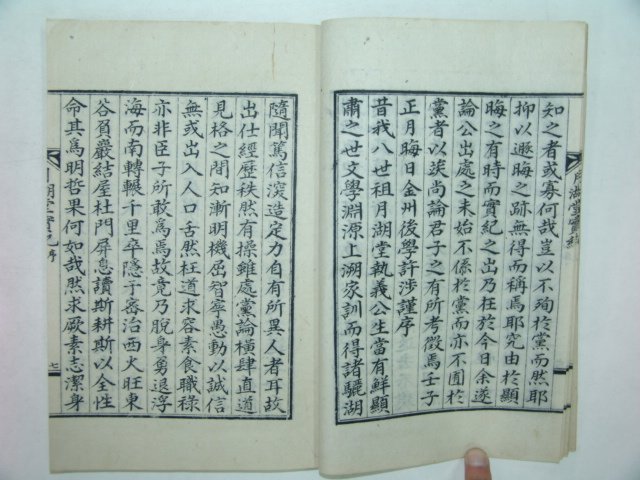 知之者或寡何哉豈以不殉於黨而然耶
抑以遯晦之跡無得而稱焉耶究由於顯
晦之有時而實紀之出乃在於今日余遂
論公出處之末始不係於黨而亦不囿於
黨者以俟尚論君子之有所考徵焉壬子
正月晦日金州後學許涉謹序
昔我八世祖月湖堂執義公生當有鮮顯
肅之世文學淵源上溯家訓而得諸驪湖
隨聞篤信深造定力自有所異人者耳故
出仕經歷秩然有操雖處黨論橫肆直道
見格之間知漸明機屈智寧愚動以誠信
無或出入人口舌然枉道求容素食職祿
亦非臣子所敢爲焉故竟乃脫身勇退浮
海而南轉輾千里卒隱于密治西火旺東
谷負巖結屋杜門屏息讀斯耕斯以全性
命其爲明哲果何如哉然求厥素志潔身
月湖堂實紀 序